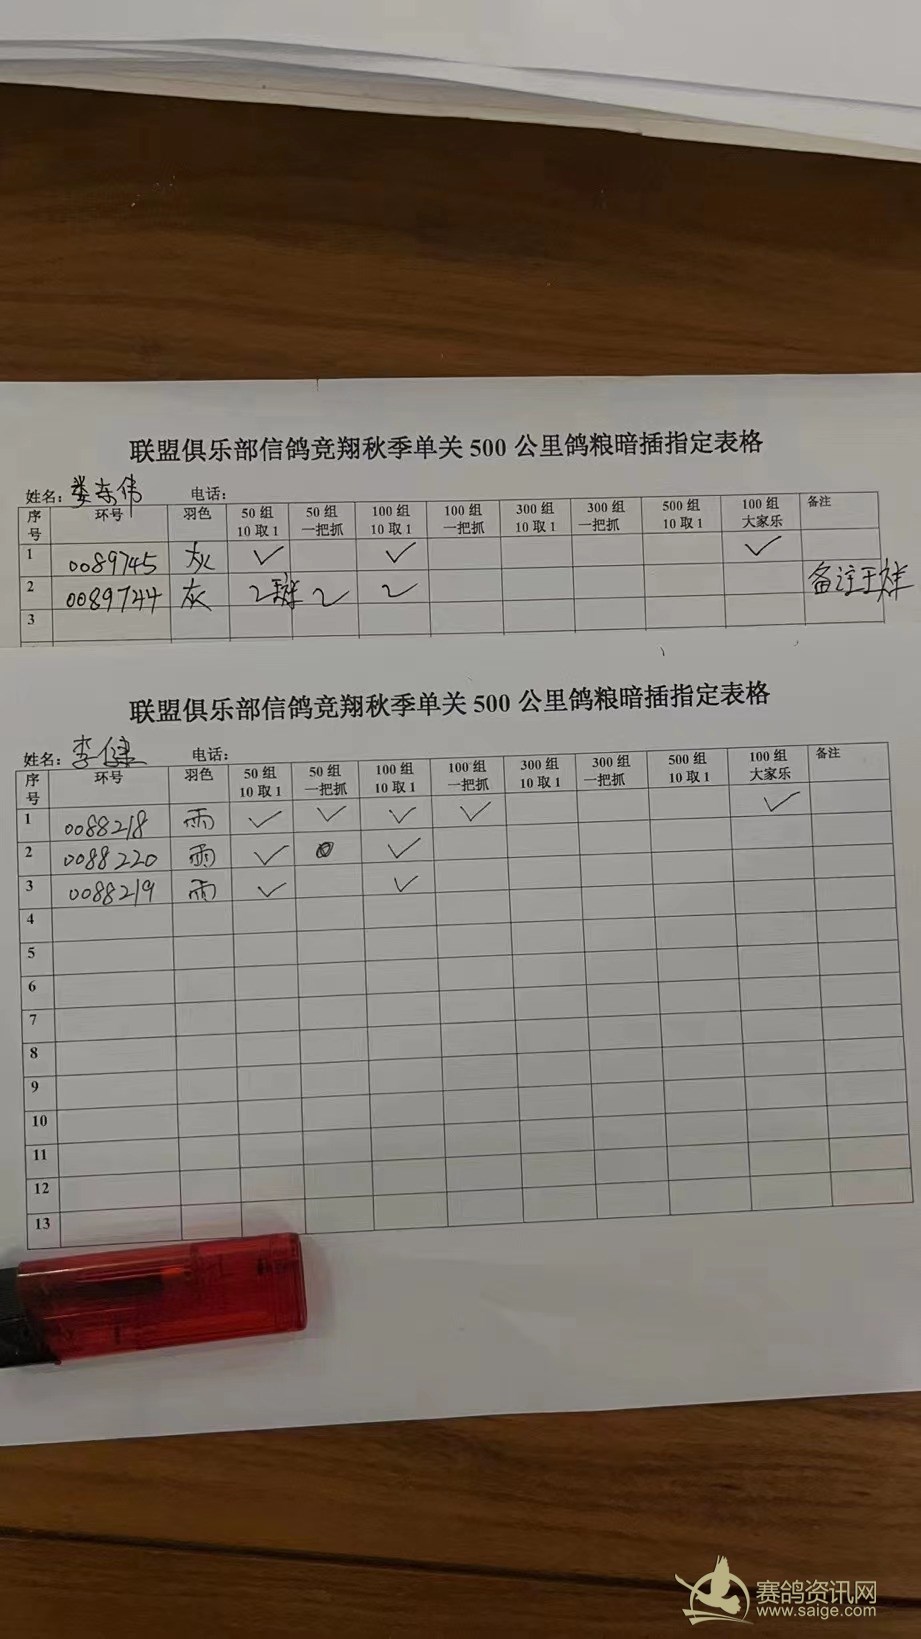 联盟俱乐部信鸽竞翔秋季单关 500 公里鸽粮暗插指定表格
姓名：娄东伟 电话：
序号 环号 羽色 50 组 10 取 1 50 组 一把抓 100 组 10 取 1 100 组 一把抓 300 组 10 取 1 300 组 一把抓 500 组 10 取 1 100 组 大家乐 备注
1 0089745 灰 ✓ ✓ ✓
2 0089744 灰 2 2 2 备注于
3
联盟俱乐部信鸽竞翔秋季单关 500 公里鸽粮暗插指定表格
姓名：李健 电话：
序号 环号 羽色 50 组 10 取 1 50 组 一把抓 100 组 10 取 1 100 组 一把抓 300 组 10 取 1 300 组 一把抓 500 组 10 取 1 100 组 大家乐 备注
1 0088218 雨 ✓ ✓ ✓ ✓ ✓
2 0088220 雨 ✓ ✓
3 0088219 雨 ✓ ✓
4
5
6
7
8
9
10
11
12
13
赛鸽资讯网
www.saige.com